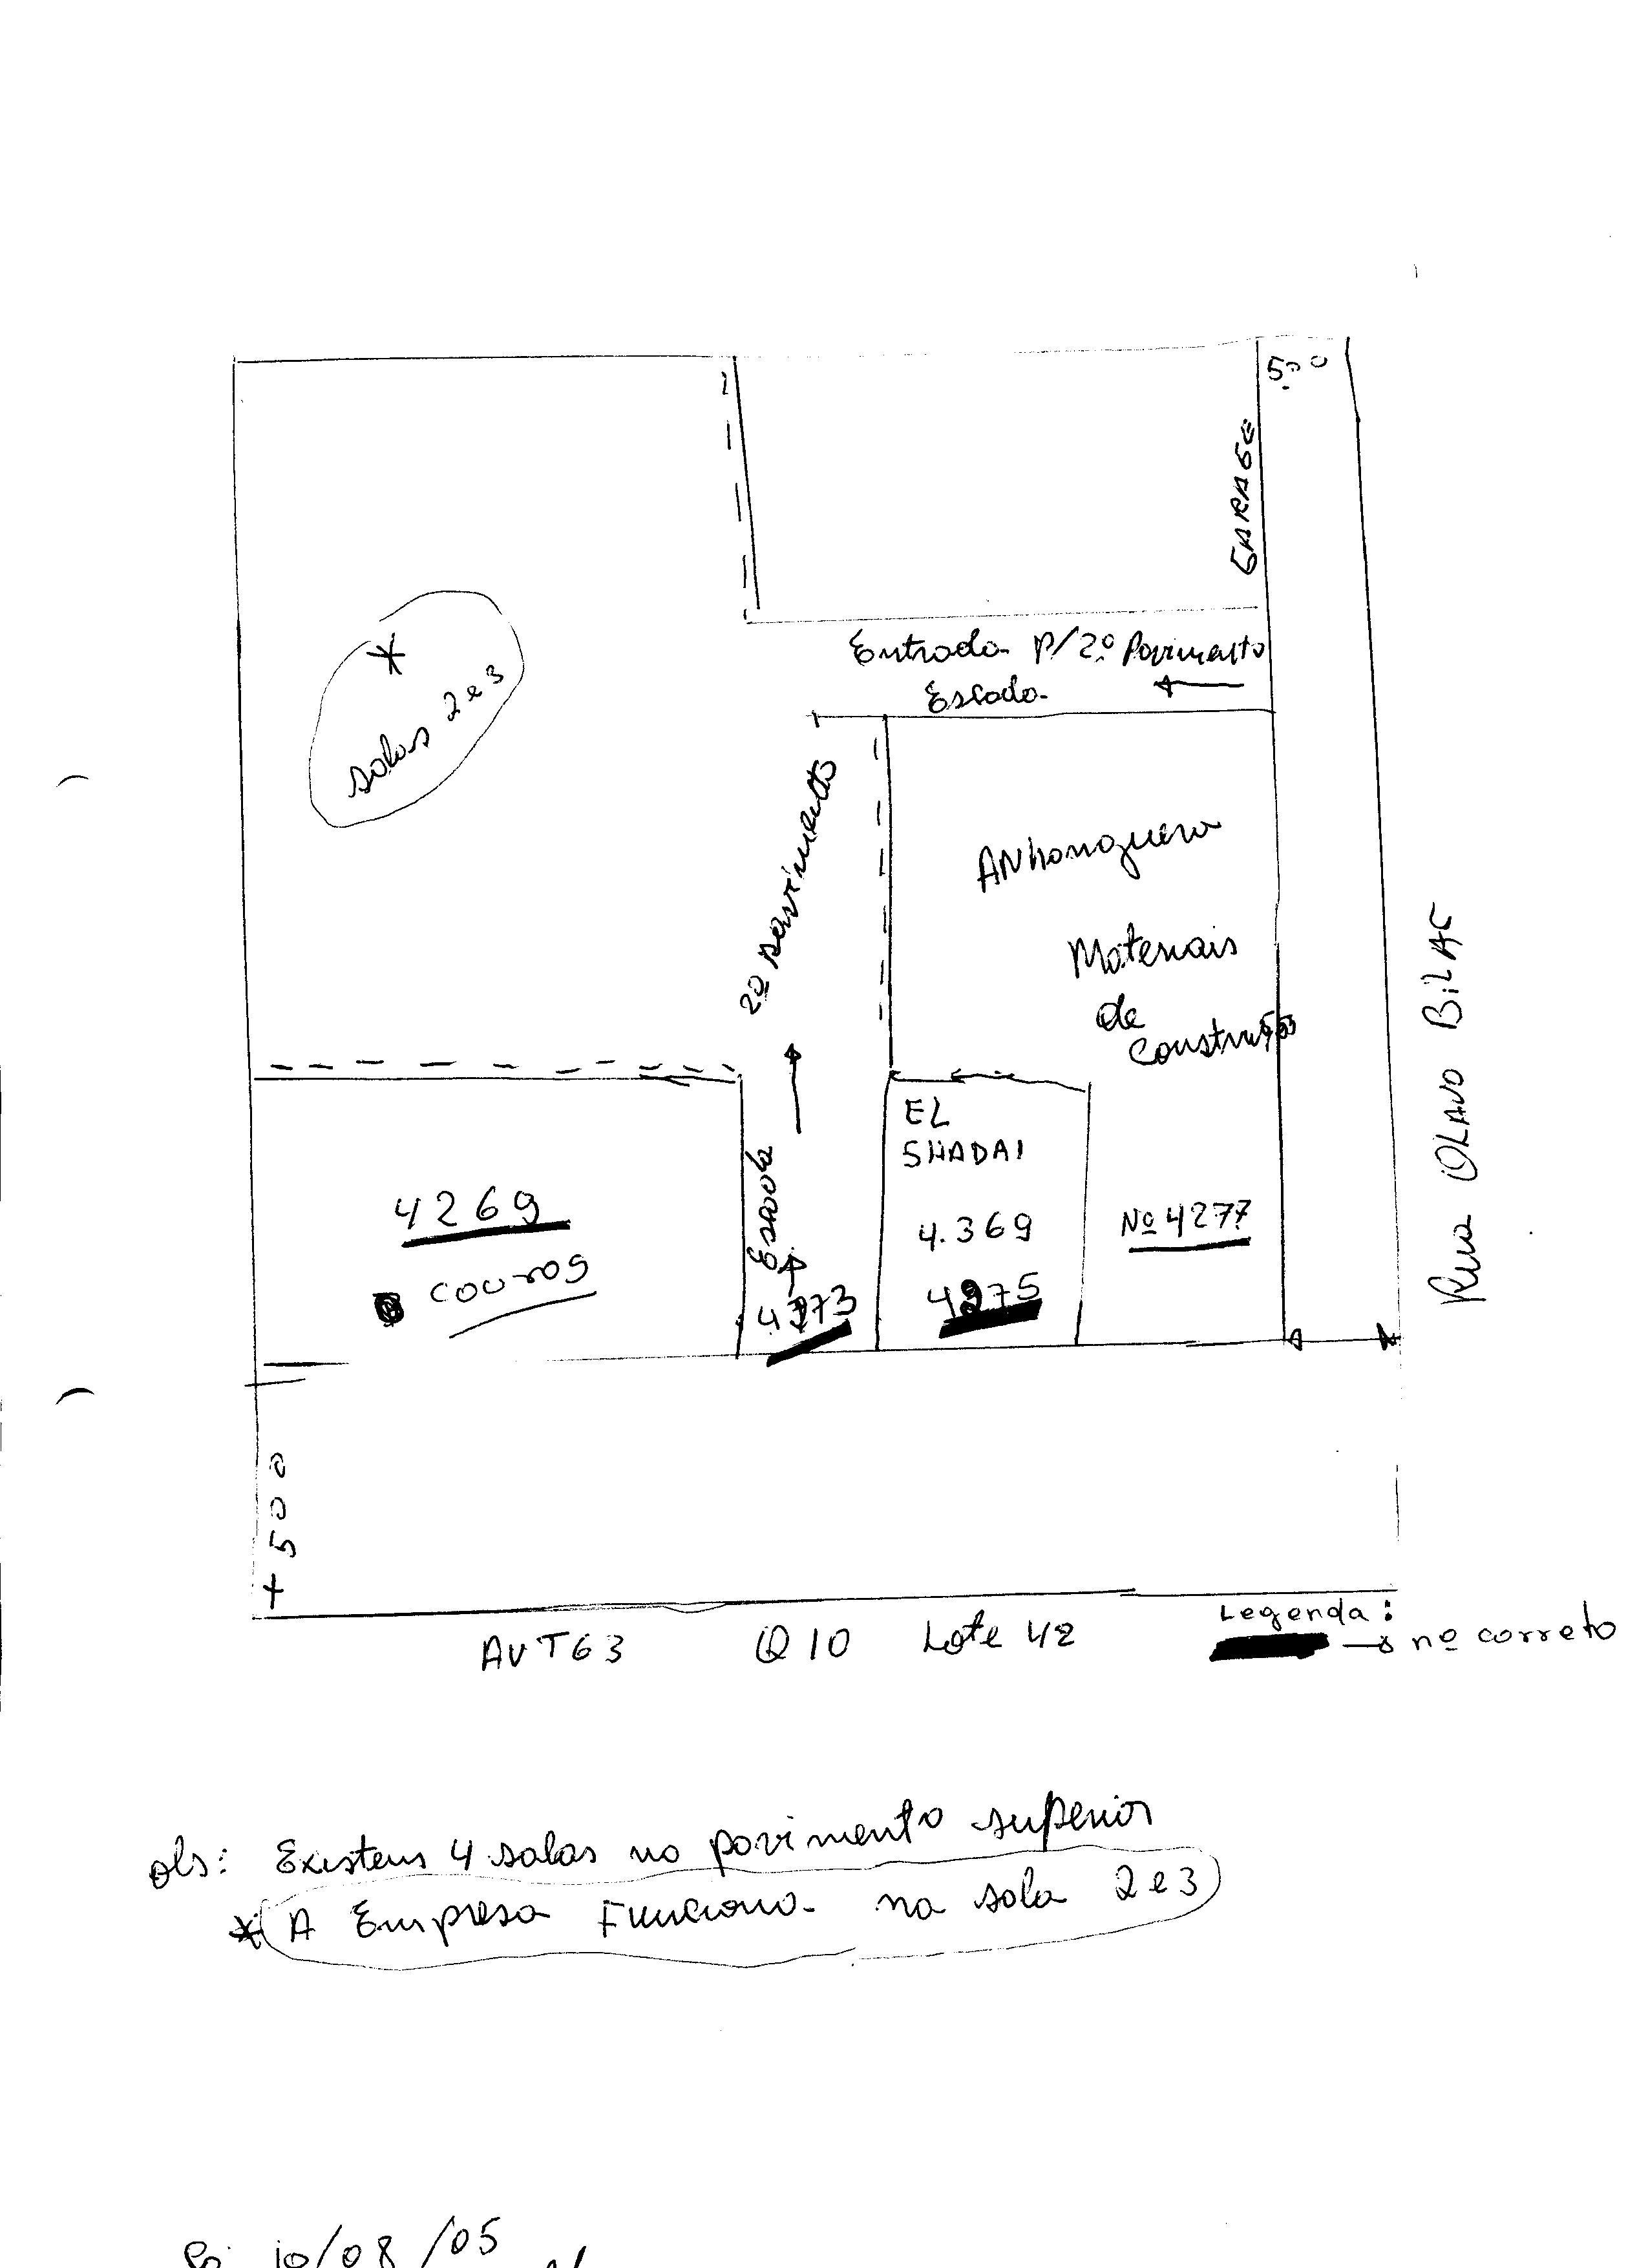 5,00
GARAGE
Entrada P/2º Pavimento
Escada
*
salas 2 e 3
2º pavimento
ANhanguera
Materiais
de
Construção
Rua OLAVO BILAC
EL
SHADAI
4269
couros
Escada
4273
4.369
4275
Nº 4277
+ 500
AV T63 Q 10 Lote 42
Legenda:
→ nº correto
obs: Existem 4 salas no pavimento superior
* A Empresa Funciona na sala 2 e 3
10/08/05